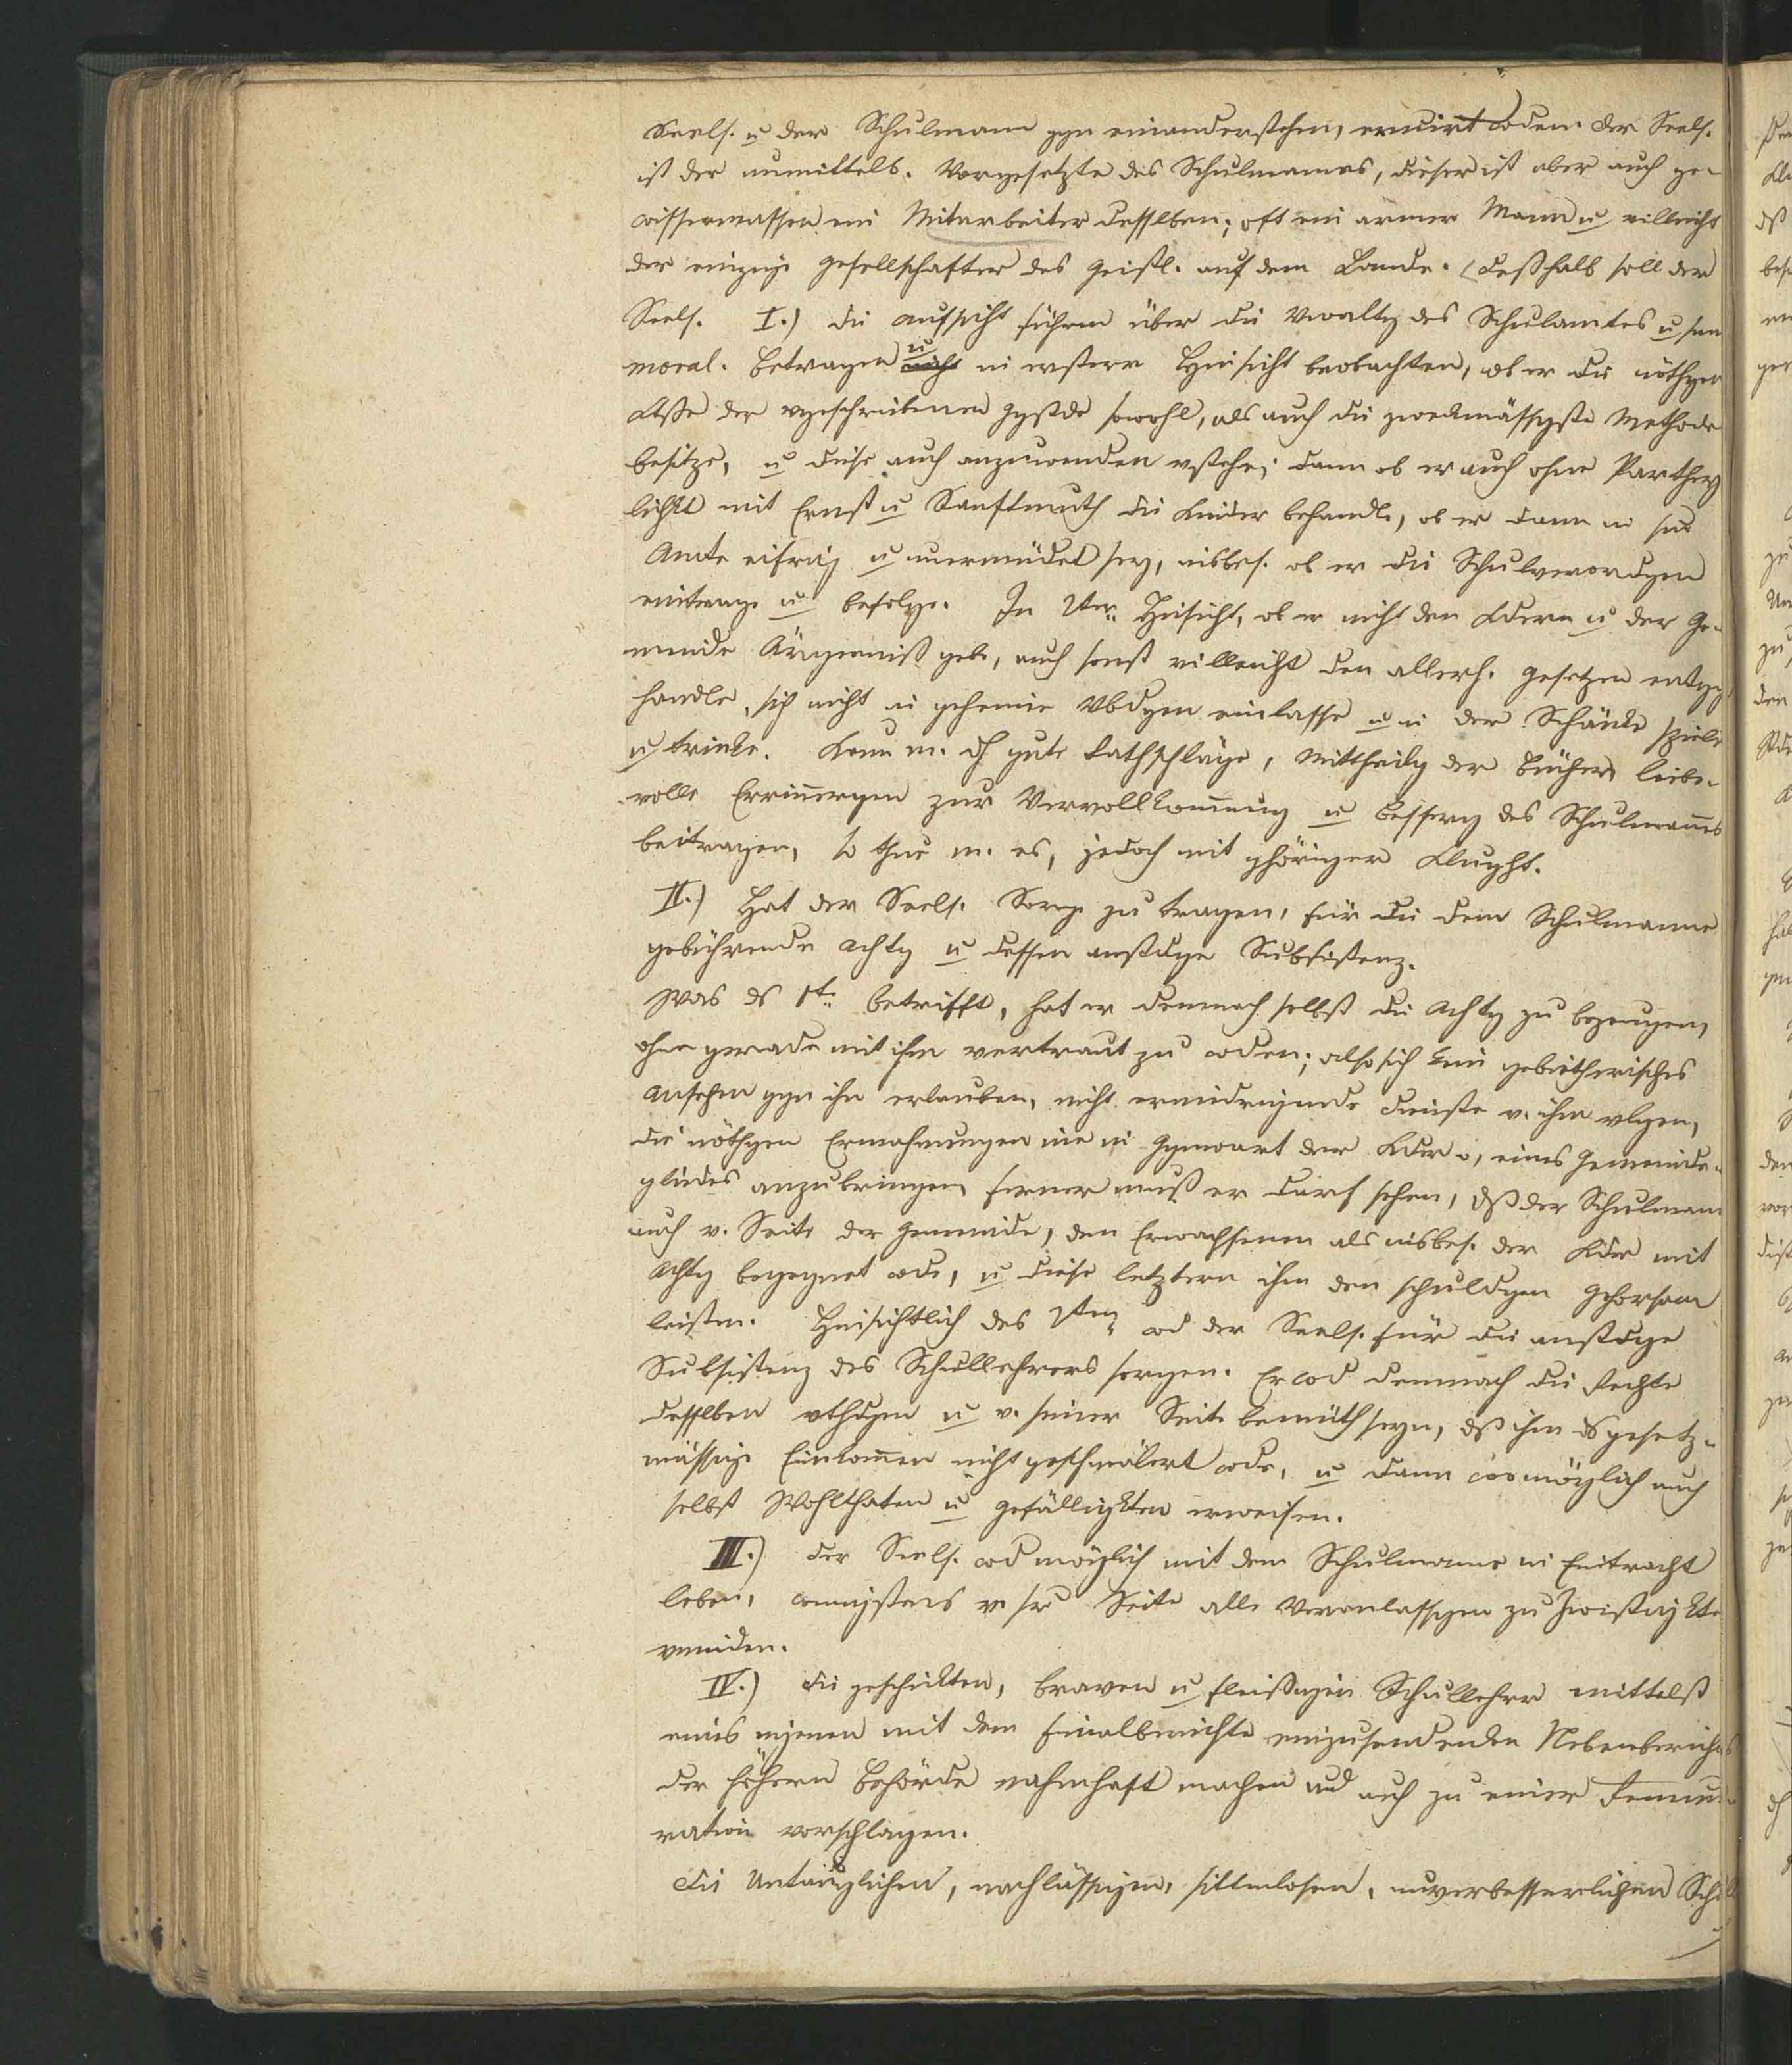 Seels. u der Schulmann ggn einanderstehen, eruirt wden. Der Seels.
ist der unmittelb. Vorgesetzte des Schulmannes, dieser ist aber auch ge-
wissermassen ein Mitarbeiter desselben; oft ein armer Mann u villeicht
der einzige Gesellschafter des Geistl. auf dem Lande. Desshalb soll der
Seels. I.) die Aufsicht führen über die Vwaltg des Schulamtes u sein
moral. Betragen u in ersterer Hinsicht beobachten, ob er die nöthgen
der vgeschriebenen Ggstde sowohl, als auch die zweckmässigste Methode
besitze, u diese auch anzuwenden vstehe; dann ob er auch ohne Parthey
lichkt mit Ernst u Sanftmuth die Kinder behandle, ob er dann in sm
Amte eifrig u unermüdet sey, insbes. ob er die Schulverordgen
eintrage u befolge. In 2ter Hinsicht, ob er nicht den Kdern u der Ge-
meinde Ärgerniß gebe, auch sonst villeicht den allerh. Gesetzen entgg
handle, sich nicht in geheime Vbdgen einlasse u in der Schänke spiele
u trinke. Kann m. dh gute Rathschläge, Mittheilg der Bücher, liebe-
volle Erinnergen zur Vervollkommung u Besserg des Schulmannes
beitragen, so thue m. es, jedoch mit ghöriger Klught.
II.) Hat der Seels. Sorge zu tragen, für die dem Schulmanne
gebührende Achtg u dessen anstdge Subsistenz.
Was ds 1te betrifft, hat er demnach selbst die Achtg zu bezeugen,
ohne gerade mit ihm vertraut zu wden; also sich kein gebietherisches
Ansehen ggn ihn erlauben, nicht erniedrigende Dienste v. ihm vlgen,
die nöthgen Ermahnungen nie in Ggenwart der Kder o, eines Gemeinde-
gliedes anzubringen, ferner muß er darf sehen, dß der Schulmann
auch v. Seite der Gemeinde, den Erwachsenen als insbes. der Kder mit
Achtg begegnet wde, u diese letztern ihm den schuldgen Gehorsam
leisten. Hinsichtlich des 2ten wd der Seels. für die anstdge
Subsistenz des Schullehrers sorgen. Er wd demnach die Rechte
desselben vthdgen u v. seiner Seite bemüth seyn, dß ihm ds gesetz-
mässige Einkommen nicht geschmälert wde, u dann womöglich auch
selbst Wohlthaten u Gefälligkten erweisen.
III.) Der Seels. wd möglich mit dem Schulmanne in Eintracht
leben, wenigstens v. sr Seite alle Veranlassgen zu Zwistigkten
vmeiden.
IV.) Die geschickten, braven u fleissigen Schullehrer mittelst
eines eigenen mit dem Finalberichte einzusendenden Nebenberichtes
der höhern Behörde nahmhaft machen und auch zu einer Remune-
ration vorschlagen.
Die Untauglichen, nachlässigen, sittenlosen, unverbesserlichen Schull